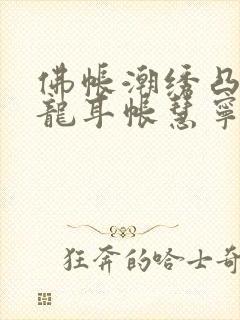 佛帐潮绣凸
龍耳帐慧寧
狂奔的哈士奇